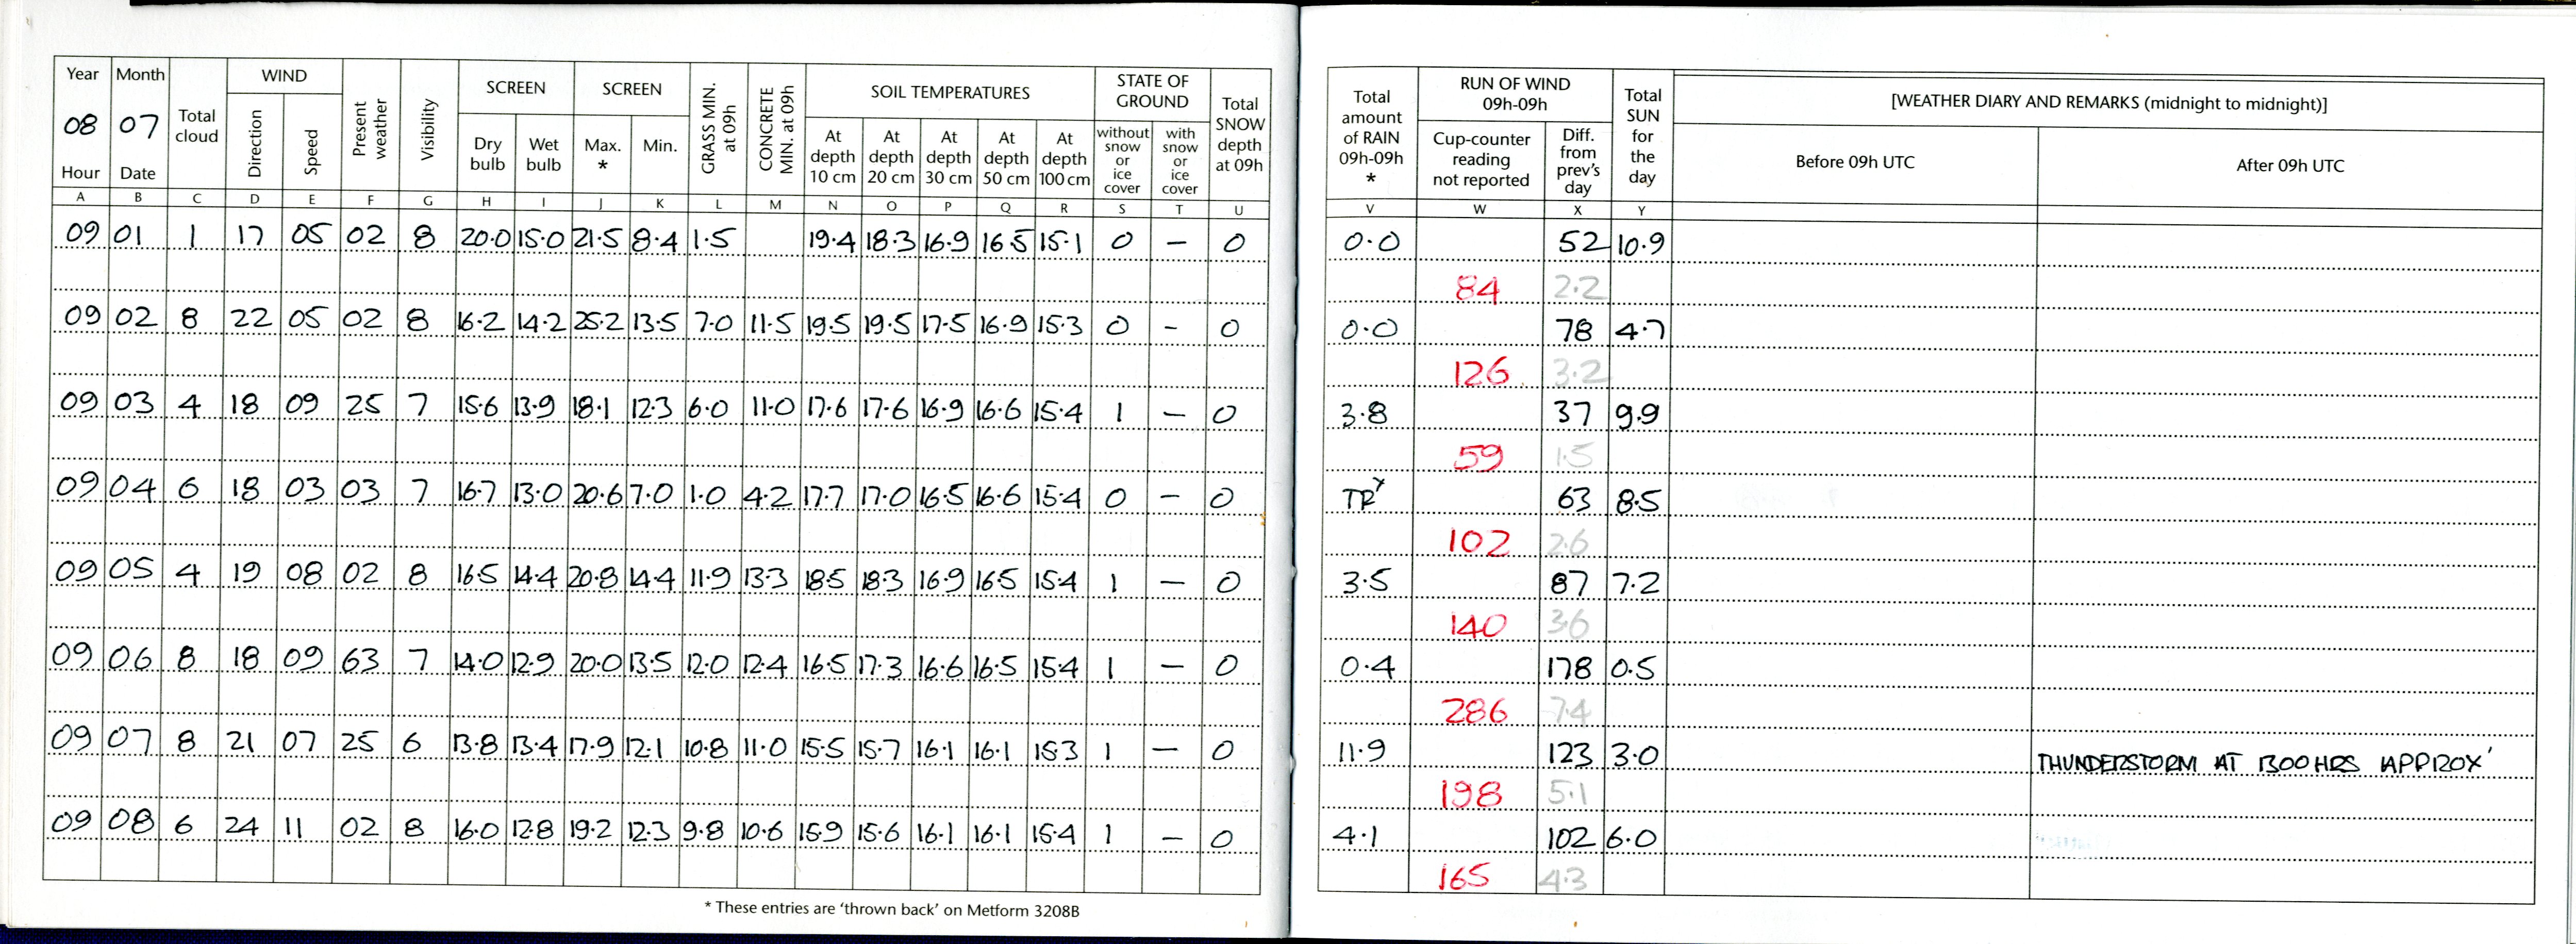 Year Month Total cloud WIND Present weather Visibility SCREEN SCREEN GRASS MIN. at 09h CONCRETE MIN. at 09h SOIL TEMPERATURES STATE OF GROUND Total SNOW depth at 09h Total amount of RAIN 09h-09h * RUN OF WIND 09h-09h Total SUN for the day [WEATHER DIARY AND REMARKS (midnight to midnight)]
08 07 Direction Speed Dry bulb Wet bulb Max. * Min. At depth 10 cm At depth 20 cm At depth 30 cm At depth 50 cm At depth 100 cm without snow or ice cover with snow or ice cover Cup-counter reading not reported Diff. from prev's day Before 09h UTC After 09h UTC
Hour Date
A B C D E F G H I J K L M N O P Q R S T U V W X Y
09 01 1 17 05 02 8 20.0 15.0 21.5 8.4 1.5 19.4 18.3 16.9 16.5 15.1 0 – 0 0.0 52 10.9
84 2.2
09 02 8 22 05 02 8 16.2 14.2 25.2 13.5 7.0 11.5 19.5 19.5 17.5 16.9 15.3 0 – 0 0.0 78 4.7
126 3.2
09 03 4 18 09 25 7 15.6 13.9 18.1 12.3 6.0 11.0 17.6 17.6 16.9 16.6 15.4 1 – 0 3.8 37 9.9
59 1.5
09 04 6 18 03 03 7 16.7 13.0 20.6 7.0 1.0 4.2 17.7 17.0 16.5 16.6 15.4 0 – 0 TR 63 8.5
102 2.6
09 05 4 19 08 02 8 16.5 14.4 20.8 14.4 11.9 13.3 18.5 18.3 16.9 16.5 15.4 1 – 0 3.5 87 7.2
140 3.6
09 06 8 18 09 63 7 14.0 12.9 20.0 13.5 12.0 12.4 16.5 17.3 16.6 16.5 15.4 1 – 0 0.4 178 0.5
286 7.4
09 07 8 21 07 25 6 13.8 13.4 17.9 12.1 10.8 11.0 15.5 15.7 16.1 16.1 15.3 1 – 0 11.9 123 3.0 THUNDERSTORM AT 1300HRS APPROX'
198 5.1
09 08 6 24 11 02 8 16.0 12.8 19.2 12.3 9.8 10.6 15.9 15.6 16.1 16.1 15.4 1 – 0 4.1 102 6.0
165 4.3
* These entries are 'thrown back' on Metform 3208B